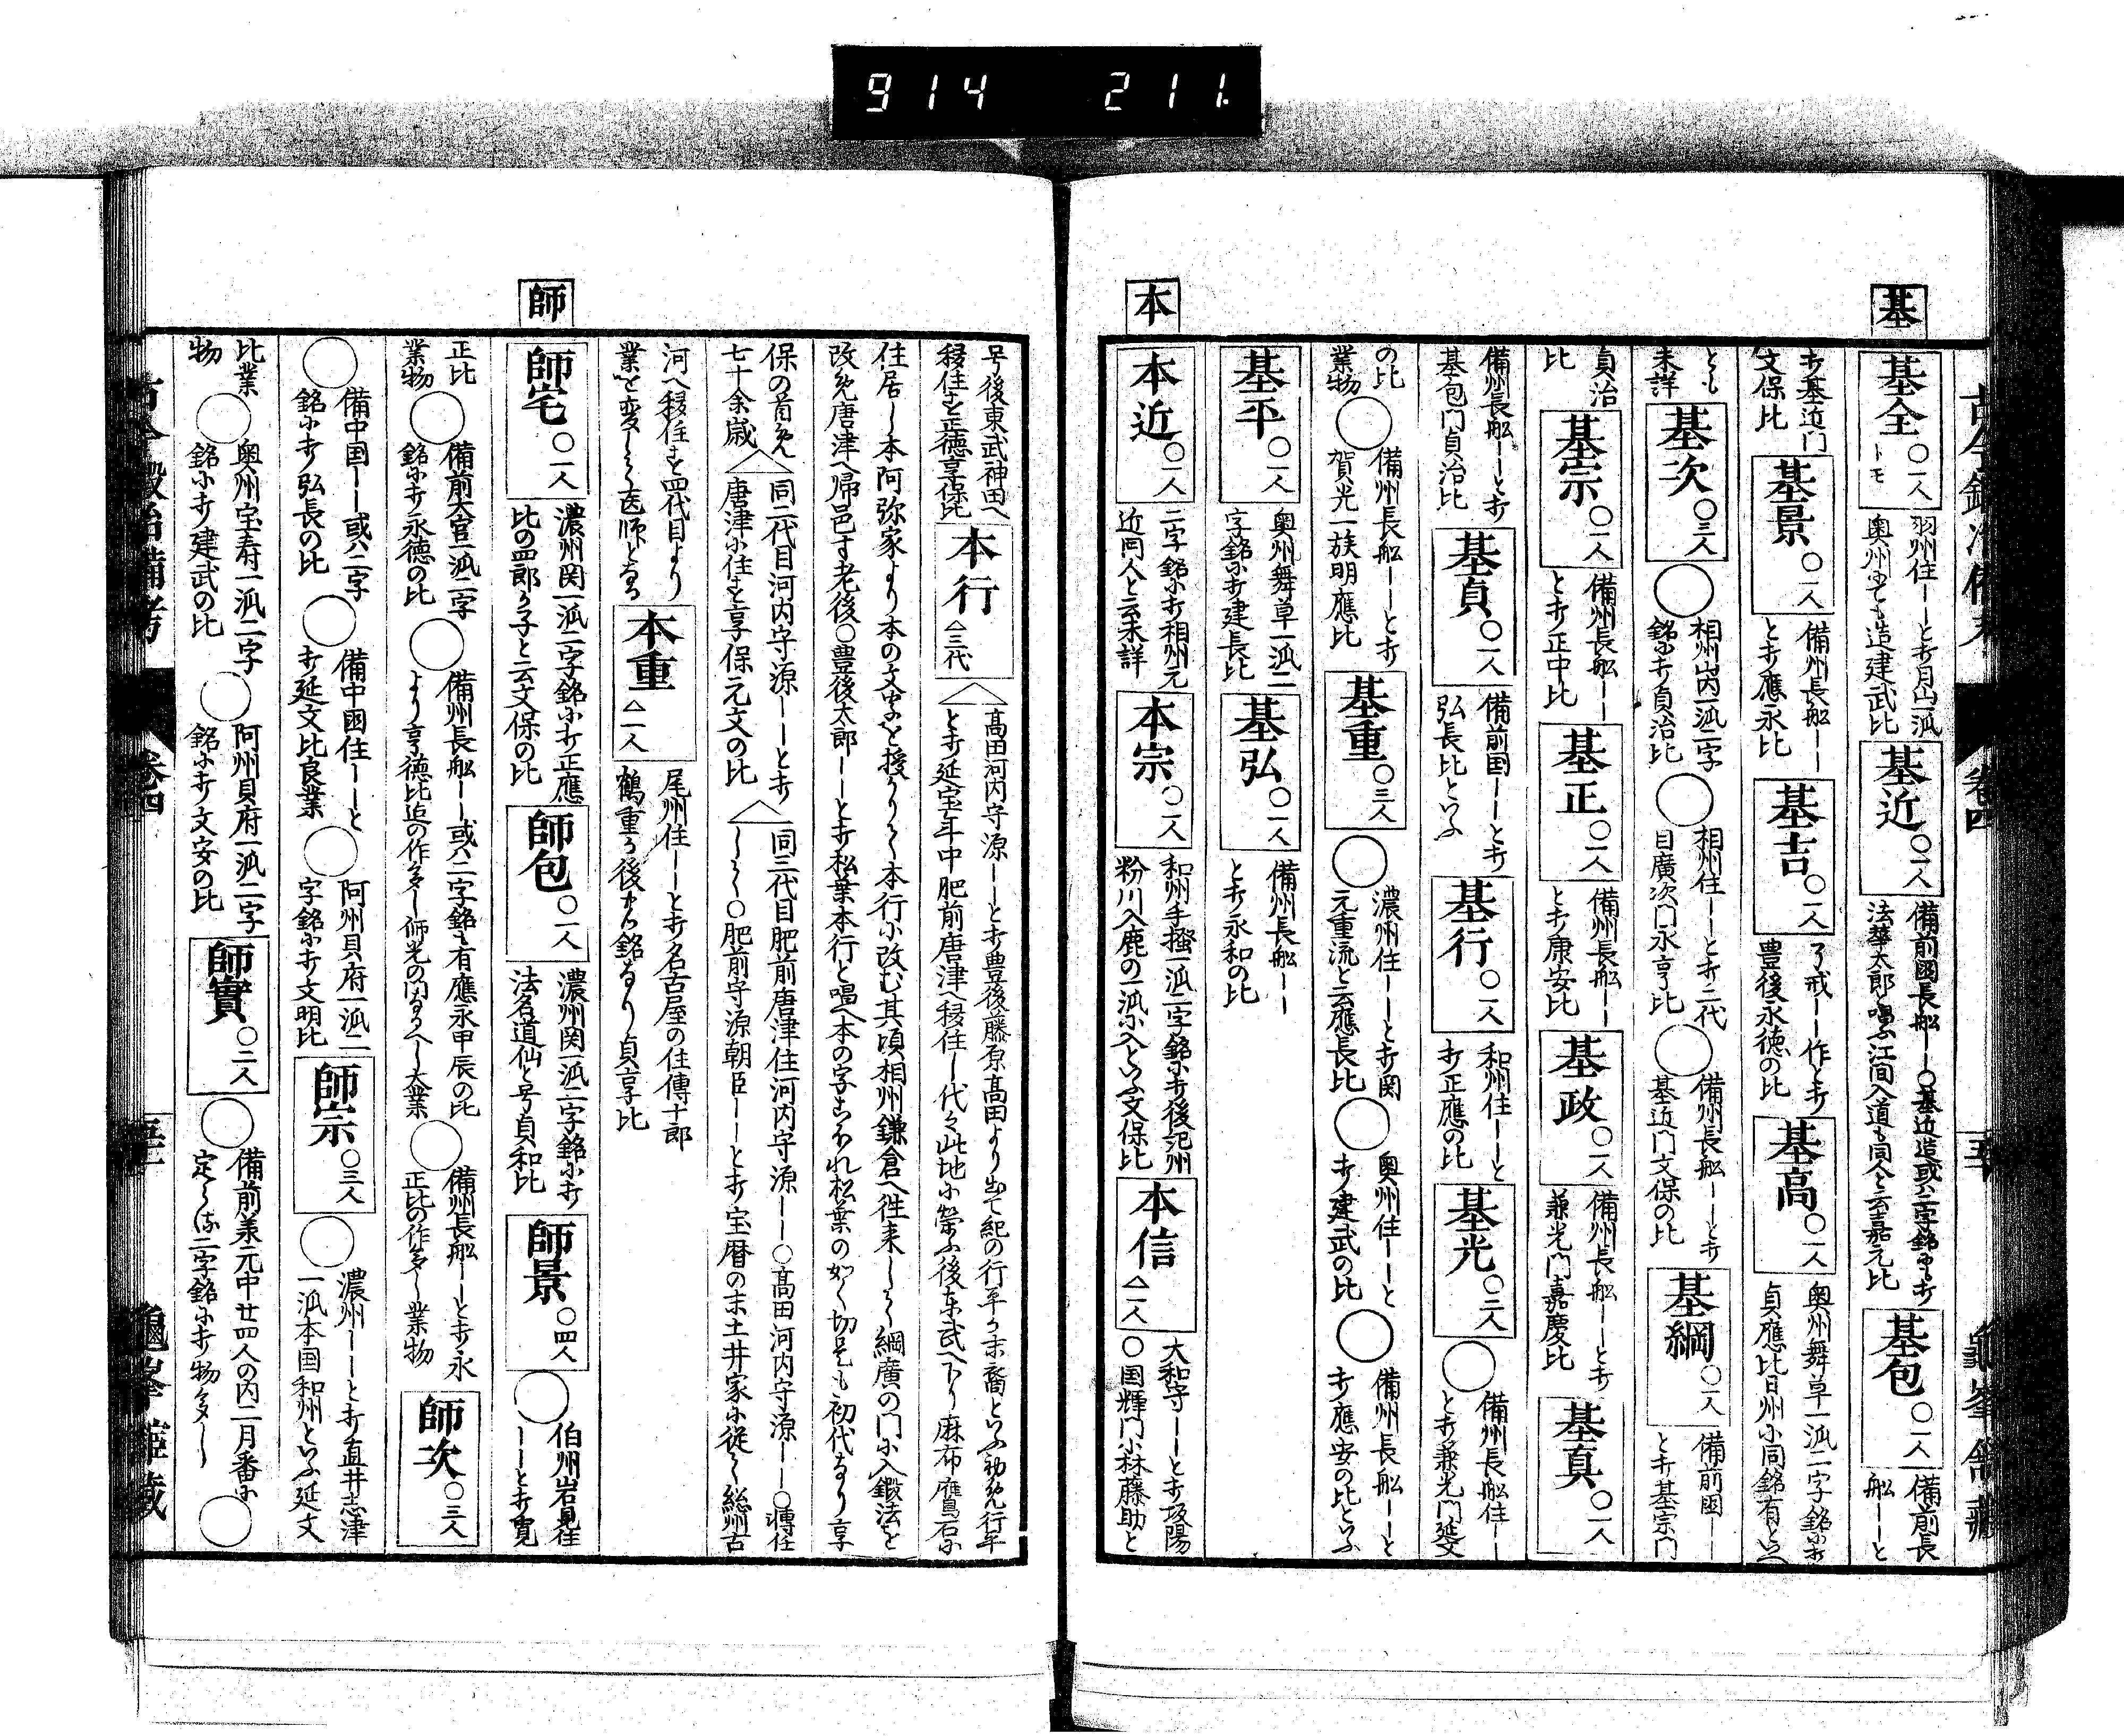 914 211.
基
本
基全 〇一人 トモ
羽州住ーーと打月山一派
奥州にても造建武比
基近 〇一人
備前國長船ーー〇基近造或ハ二字銘にも打
法華太郎と唱ふ江間入道も同人と云嘉元比
基包 〇一人
備前長
船ーーと
打基近門
文保比
基景 〇一人
備州長船ーー
と打應永比
基吉 〇一人
了戒ーー作と打
豊後永徳の比
基高 〇一人
奥州舞草一派二字銘に打
貞應比日州に同銘有といへ
とも
未詳
基次 〇三人
〇相州山内一派二字
銘に打貞治比
〇相州住ーーと打二代
目廣次門永亨比
〇備州長船ーーと打
基近門文保の比
基綱 〇一人
備前國ーー
と打基宗門
貞治
比
基宗 〇一人
備州長船ーー
と打正中比
基正 〇一人
備州長船ーー
と打康安比
基政 〇一人
備州長船ーーと打
兼光門嘉慶比
基真 〇一人
備州長船ーーと打
基包門貞治比
基貞 〇一人
備前国ーーと打
弘長比といふ
基行 〇一人
和州住ーーと
打正應の比
基光 〇二人
〇備州長船住ーー
と打兼光門延文
の比
業物
〇備州長船ーーと打
賀光一族明應比
基重 〇三人
〇濃州住ーーと打関
元重流と云應長比
〇奥州住ーーと
打建武の比
〇備州長船ーーと
打應安の比といふ
基平 〇一人
奥州舞草一派二
字銘に打建長比
基弘 〇一人
備州長船ーー
と打永和の比
本近 〇一人
二字銘に打相州元
近同人と云未詳
本宗 〇一人
和州手掻一派二字銘に打後記州
粉川入鹿の一派に入といふ文保比
本信 △一人
大和守ーーと打坂陽
〇国輝門小林藤助と
卷四
師
号後東武神田へ
移住を正德享保比
本行 △三代
△高田河内守源ーーと打豊後藤原高田より出て紀の行平か末裔といふ初め行平
と打延宝年中肥前唐津へ移住ー代々此地に榮ふ後東武へ下り麻布鷹石に
住居し本阿弥家より本の文字を授かりて本行に改む其頃相州鎌倉へ往来して綱廣の門に入鍛法を
改め唐津へ帰邑す老後〇豊後太郎ーーと打松葉本行と唱へ本の字われ松葉の如く切も初代なり享
保の首め
七十余歳
△同二代目河内守源ーーと打
唐津に住を享保元文の比
△同三代目肥前唐津住河内守源ーー〇高田河内守源ーー〇轉住
して〇肥前守源朝臣ーーと打宝暦の末土井家に従て総州古
河へ移住を四代目より
業を変して医師となる
本重 △一人
尾州住ーーと打名古屋の住傳十郎
鶴重か後から銘なり貞享比
師宅 〇一人
濃州関一派二字銘に打正應
比の四郎か子と云文保の比
師包 〇一人
濃州関一派二字銘に打
法名道仙と号貞和比
師景 〇四人
〇伯州岩見住
ーーと打寛
正比
業物
〇備前大宮一派二字
銘に打永徳の比
〇備州長船ーー或ハ二字銘も有應永甲辰の比
より亨德比迄の作多し師光の門なるへし大業
〇備州長船ーーと打永
正比の作多し業物
師次 〇三人
〇備中国ーー或ハ二字
銘に打弘長の比
〇備中國住ーーと
打延文比良業
〇阿州貝府一派二
字銘に打文明比
師宗 〇三人
〇濃州ーーと打直井志津
一派本国和州といふ延文
比業
物
〇奥州宝寿一派二字
銘に打建武の比
〇阿州貝府一派二字
銘に打文安の比
師實 〇二人
〇備前承元中廿四人の内二月番に
定らる二字銘に打物多し〇
古今鍛冶備考
卷四